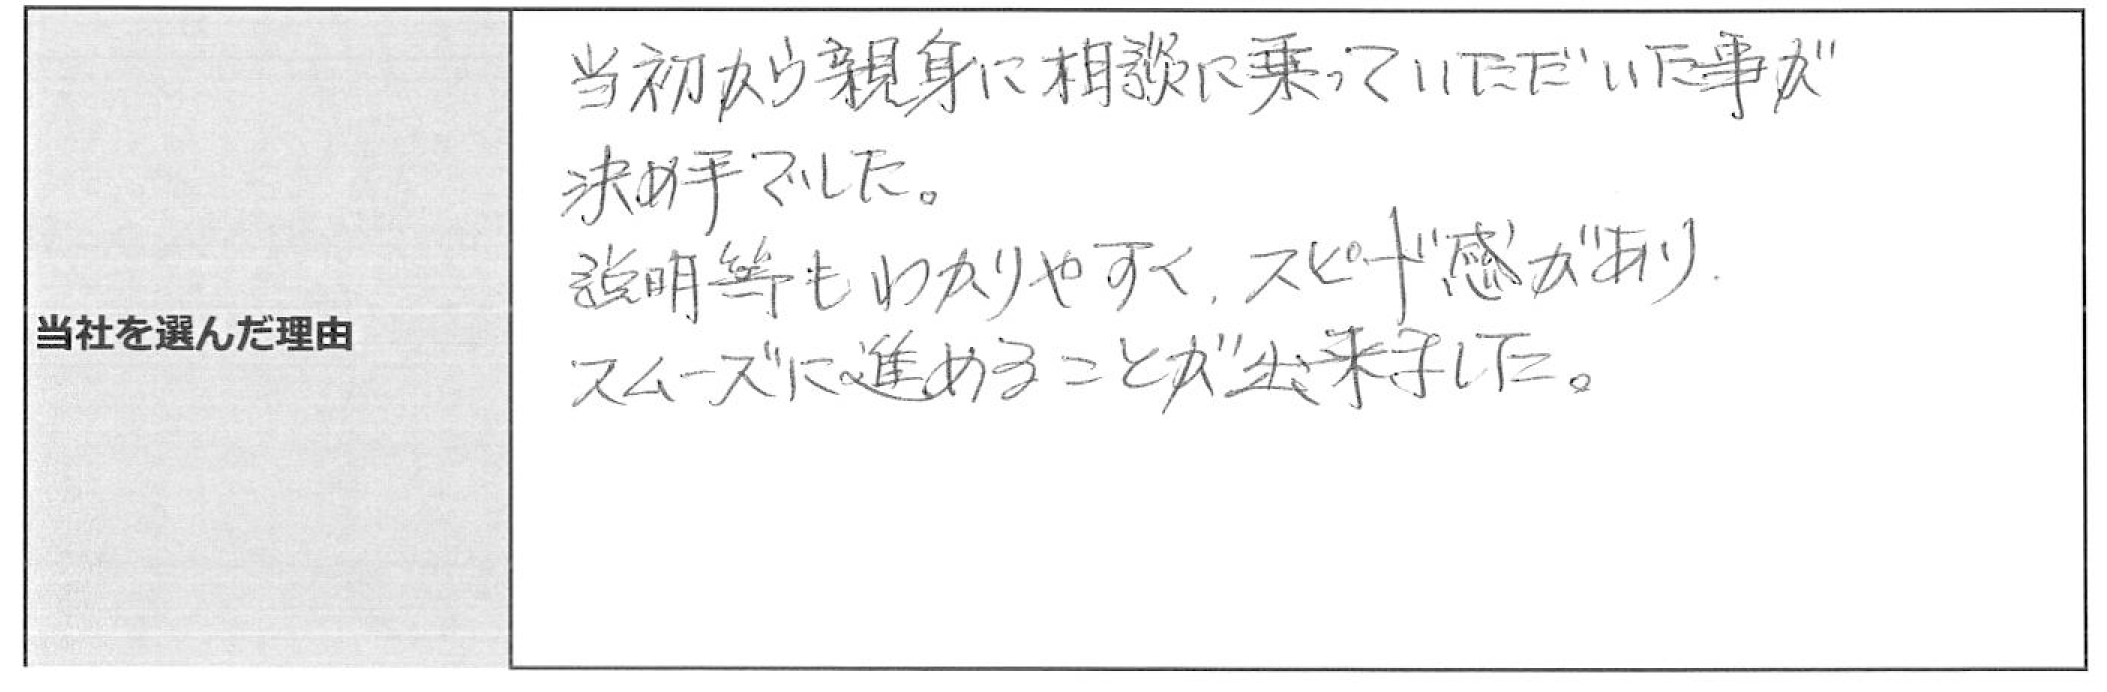 当社を選んだ理由
当初から親身に相談に乗っていただいた事が
決め手でした。
説明等もわかりやすく、スピード感があり、
スムーズに進めることが出来ました。